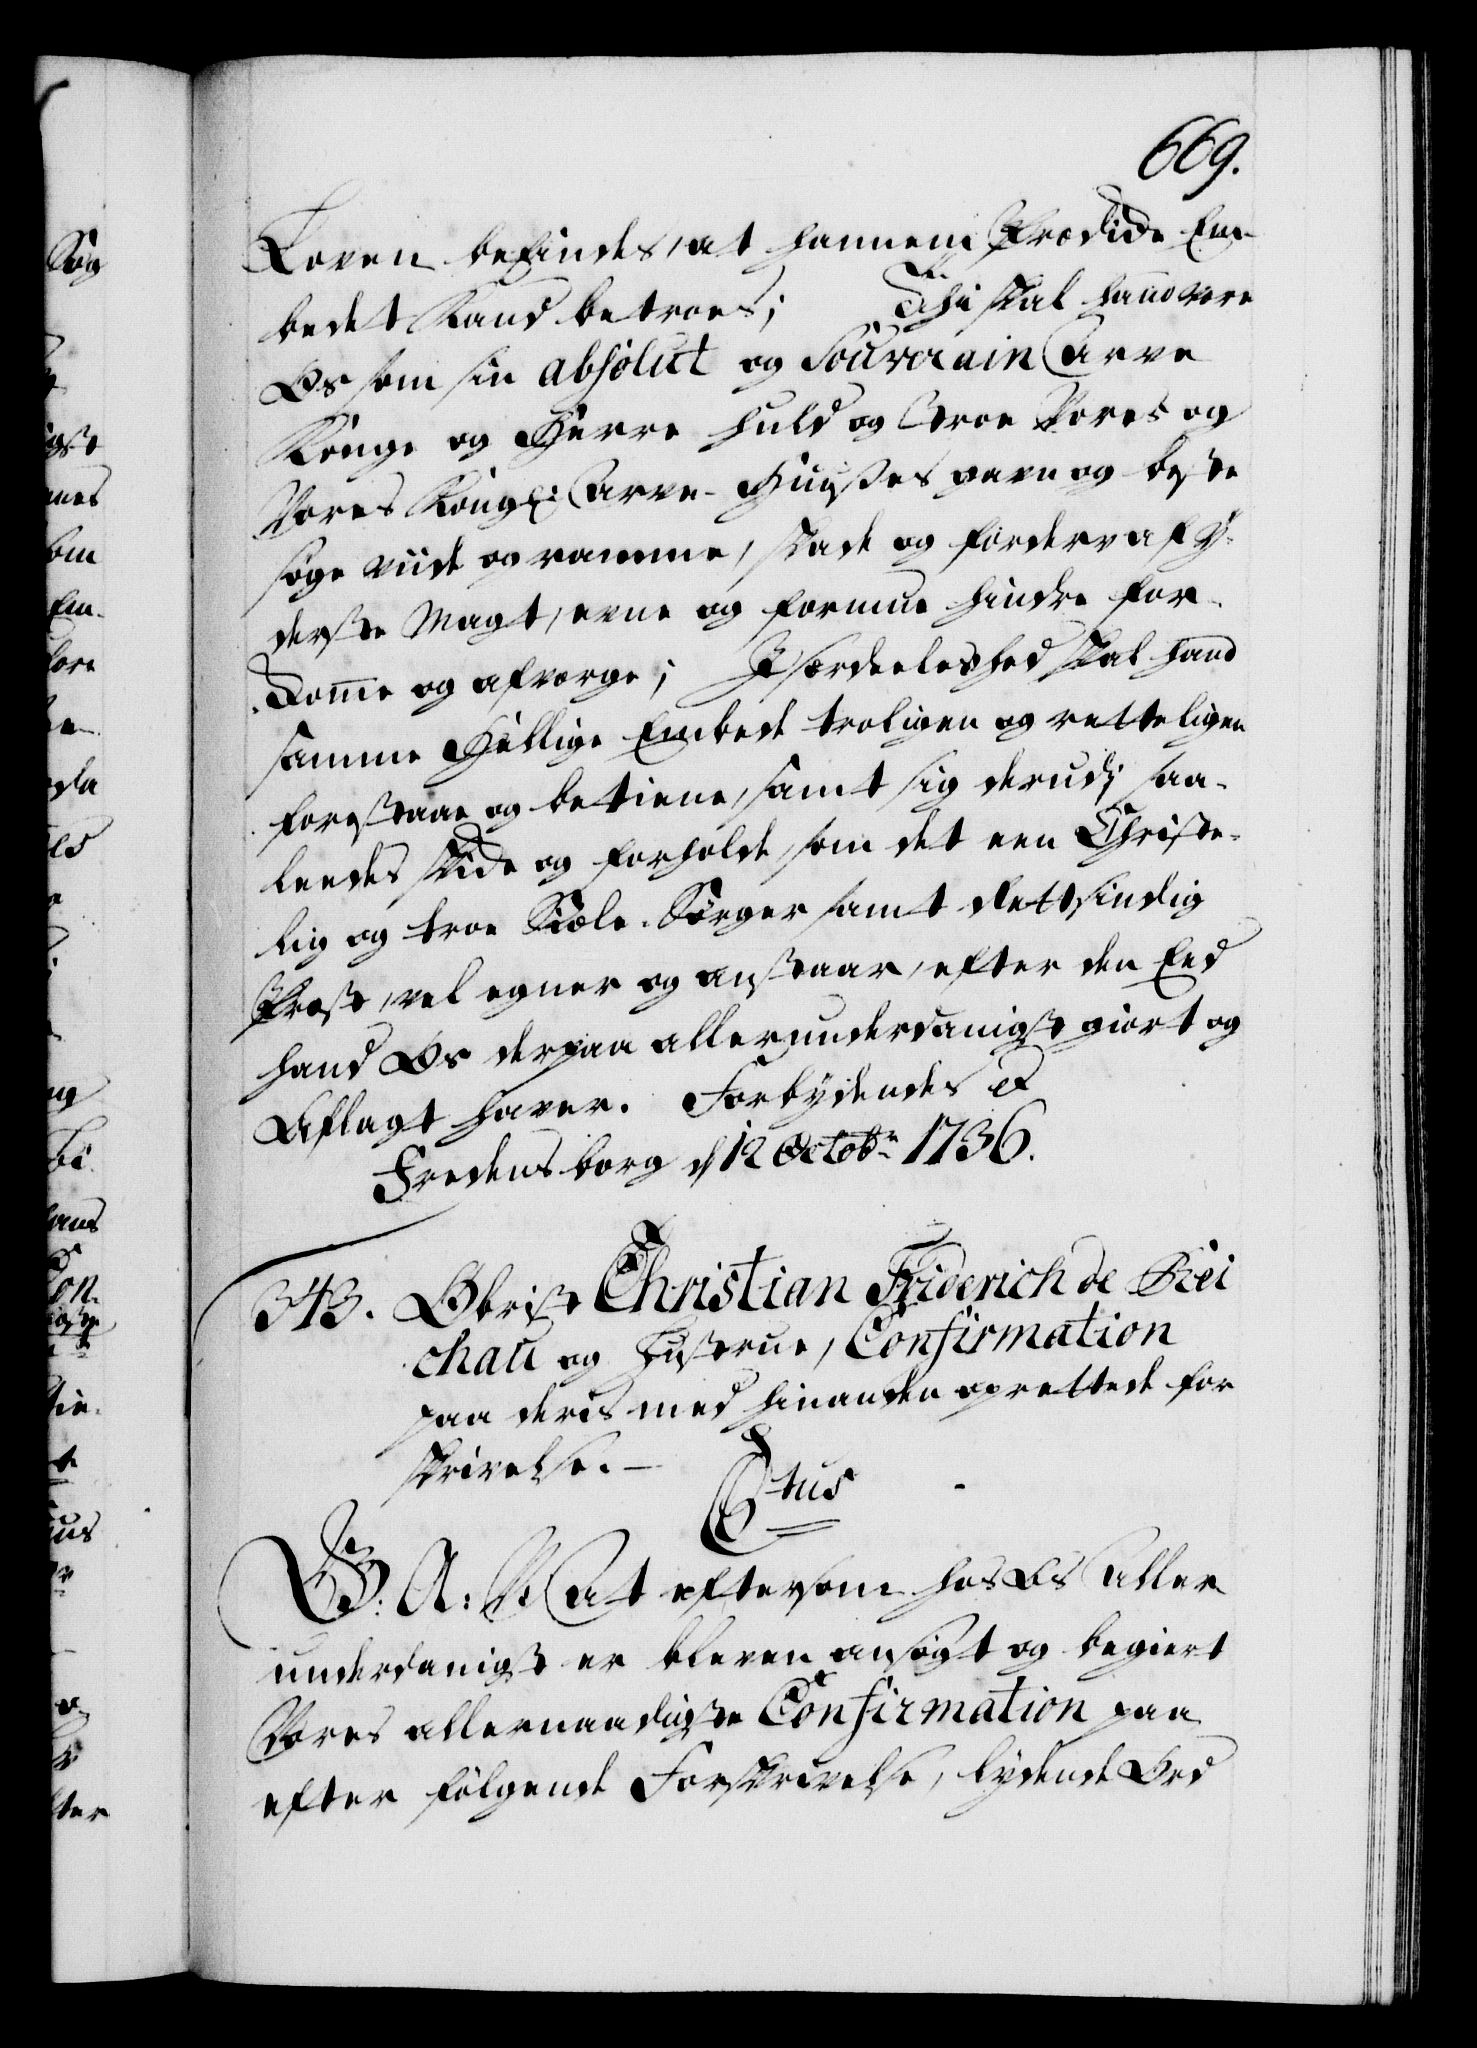 669.
Loven befindes, at hannem Prædicke Em-
bedet kand betroes; Thi skal hand være
Os som sin absolut og Souverain Arve
Konge og Herre huld og troe Vores og
Vores Kongl: Arve-Huuses gavn og beste
søge viide og ramme, skade og forderv af y-
derste Magt, evne og formue hindre for-
komme og afværge; Isærdeeleshed skal hand
samme Hellige Embede troligen og retteligen
forestaae og betiene, samt sig derudi saa-
leedes skicke og forholde, som det een Christe-
lig og troe Siæle-Sørger samt Rettsindig
Præst, vel egner og anstaar, efter den Eed
hand Os derpaa allerunderdanigst giort og
Aflagt haver. Forbydendes etc
Fredensborg d 12 Octobr 1736.
343. Obrist Christian Friderich de
chau og Hustrue, Confirmation
paa deris med hinanden oprettede for
skrivelse.
Ctus
G: A: V. At eftersom hos Os Aller
underdanigst er bleven ansøgt og begiert
Vores allernaadigste Confirmation paa
efter følgende Forskrivelse, lydende Ord